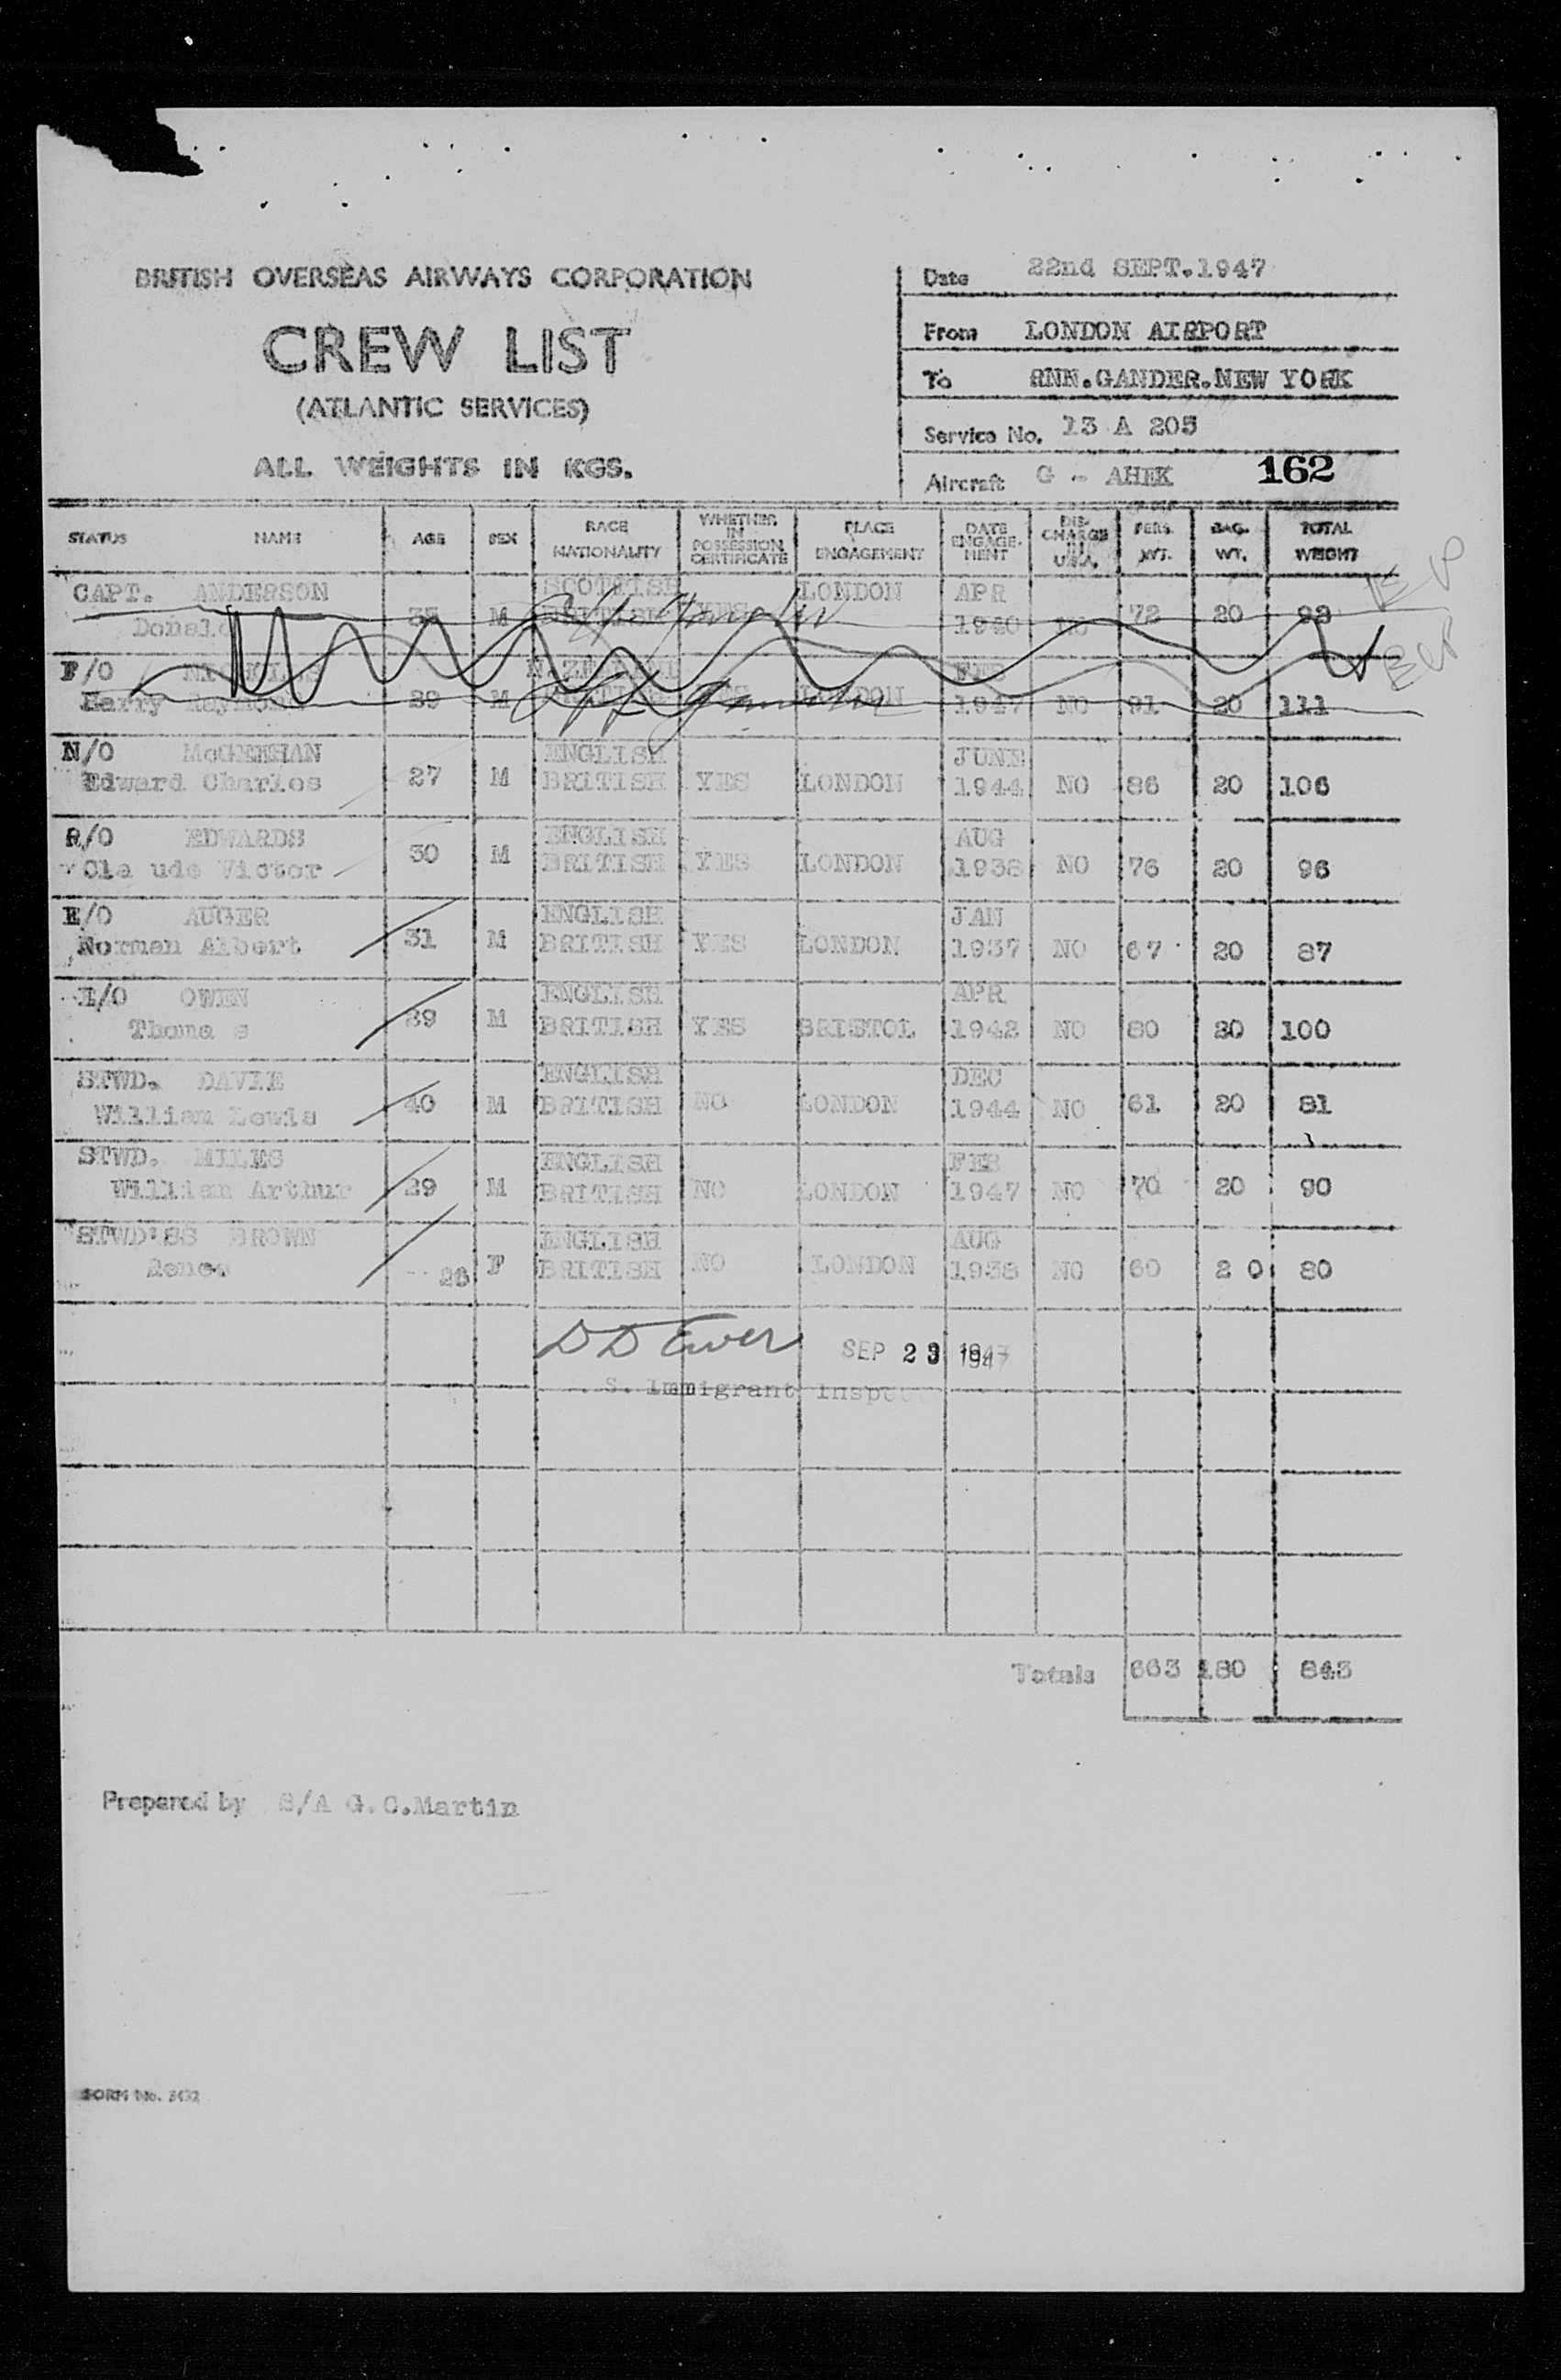 BRITISH OVERSEAS AIRWAYS CORPORATION
CREW LIST
(ATLANTIC SERVICES)
ALL WEIGHTS IN KGS.
Date 22nd SEPT.1947
From LONDON AIRPORT
To RNN.GANDER.NEW YORK
Service No. 13 A 205
Aircraft G - AHEK 162
STATUS NAME AGE SEX RACE NATIONALITY WHETHER IN POSSESSION CERTIFICATE PLACE ENGAGEMENT DATE ENGAGE-MENT DIS-CHARGE IN U.S.A. PERS. WT. BAG. WT. TOTAL WEIGHT
CAPT. ANDERSON SCOTTISH LONDON APR
Donald 35 M BRITISH YES 1940 NO 72 20 92
Off Gander
F/O FEB
Harry Raymond 29 M LONDON 1947 NO 91 20 111
Off Gander
N/O McGEEHAN ENGLISH JUNE
Edward Charles 27 M BRITISH YES LONDON 1944 NO 86 20 106
R/O EDWARDS ENGLISH AUG
Cla ude Victor 30 M BRITISH YES LONDON 1938 NO 76 20 96
E/O AUGER ENGLISH JAN
Norman Albert 31 M BRITISH YES LONDON 1937 NO 67 20 87
E/O OWEN ENGLISH APR
Thoma s 29 M BRITISH YES BRISTOL 1942 NO 80 20 100
STWD. DAVIE ENGLISH DEC
William Lewis 40 M BRITISH NO LONDON 1944 NO 61 20 81
STWD. MILES ENGLISH FEB
William Arthur 29 M BRITISH NO LONDON 1947 NO 70 20 90
STWD'SS BROWN ENGLISH AUG
Renee 26 F BRITISH NO LONDON 1938 NO 60 2 0 80
D D Ewer SEP 23 1947
. S. Immigrant Inspec
Totals 663 180 843
Prepared by S/A G.C.Martin
FORM No. 3432